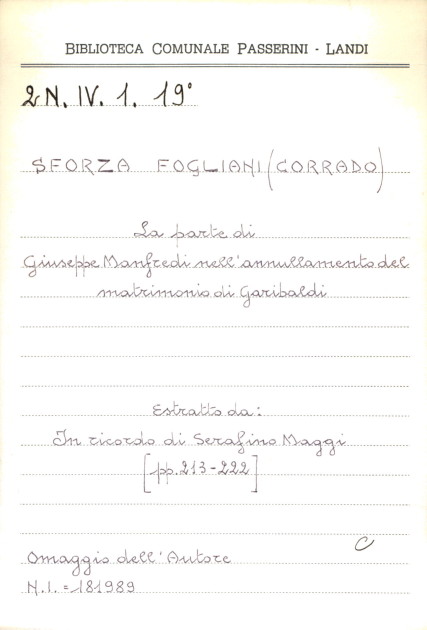 BIBLIOTECA COMUNALE PASSERINI - LANDI
2N. IV. 1. 19°
SFORZA FOGLIANI (CORRADO)
La parte di
Giuseppe Manfredi nell'annullamento del
matrimonio di Garibaldi
Estratto da:
In ricordo di Serafino Maggi
[pp. 213-222]
C
Omaggio dell'Autore
N.I. = 181989